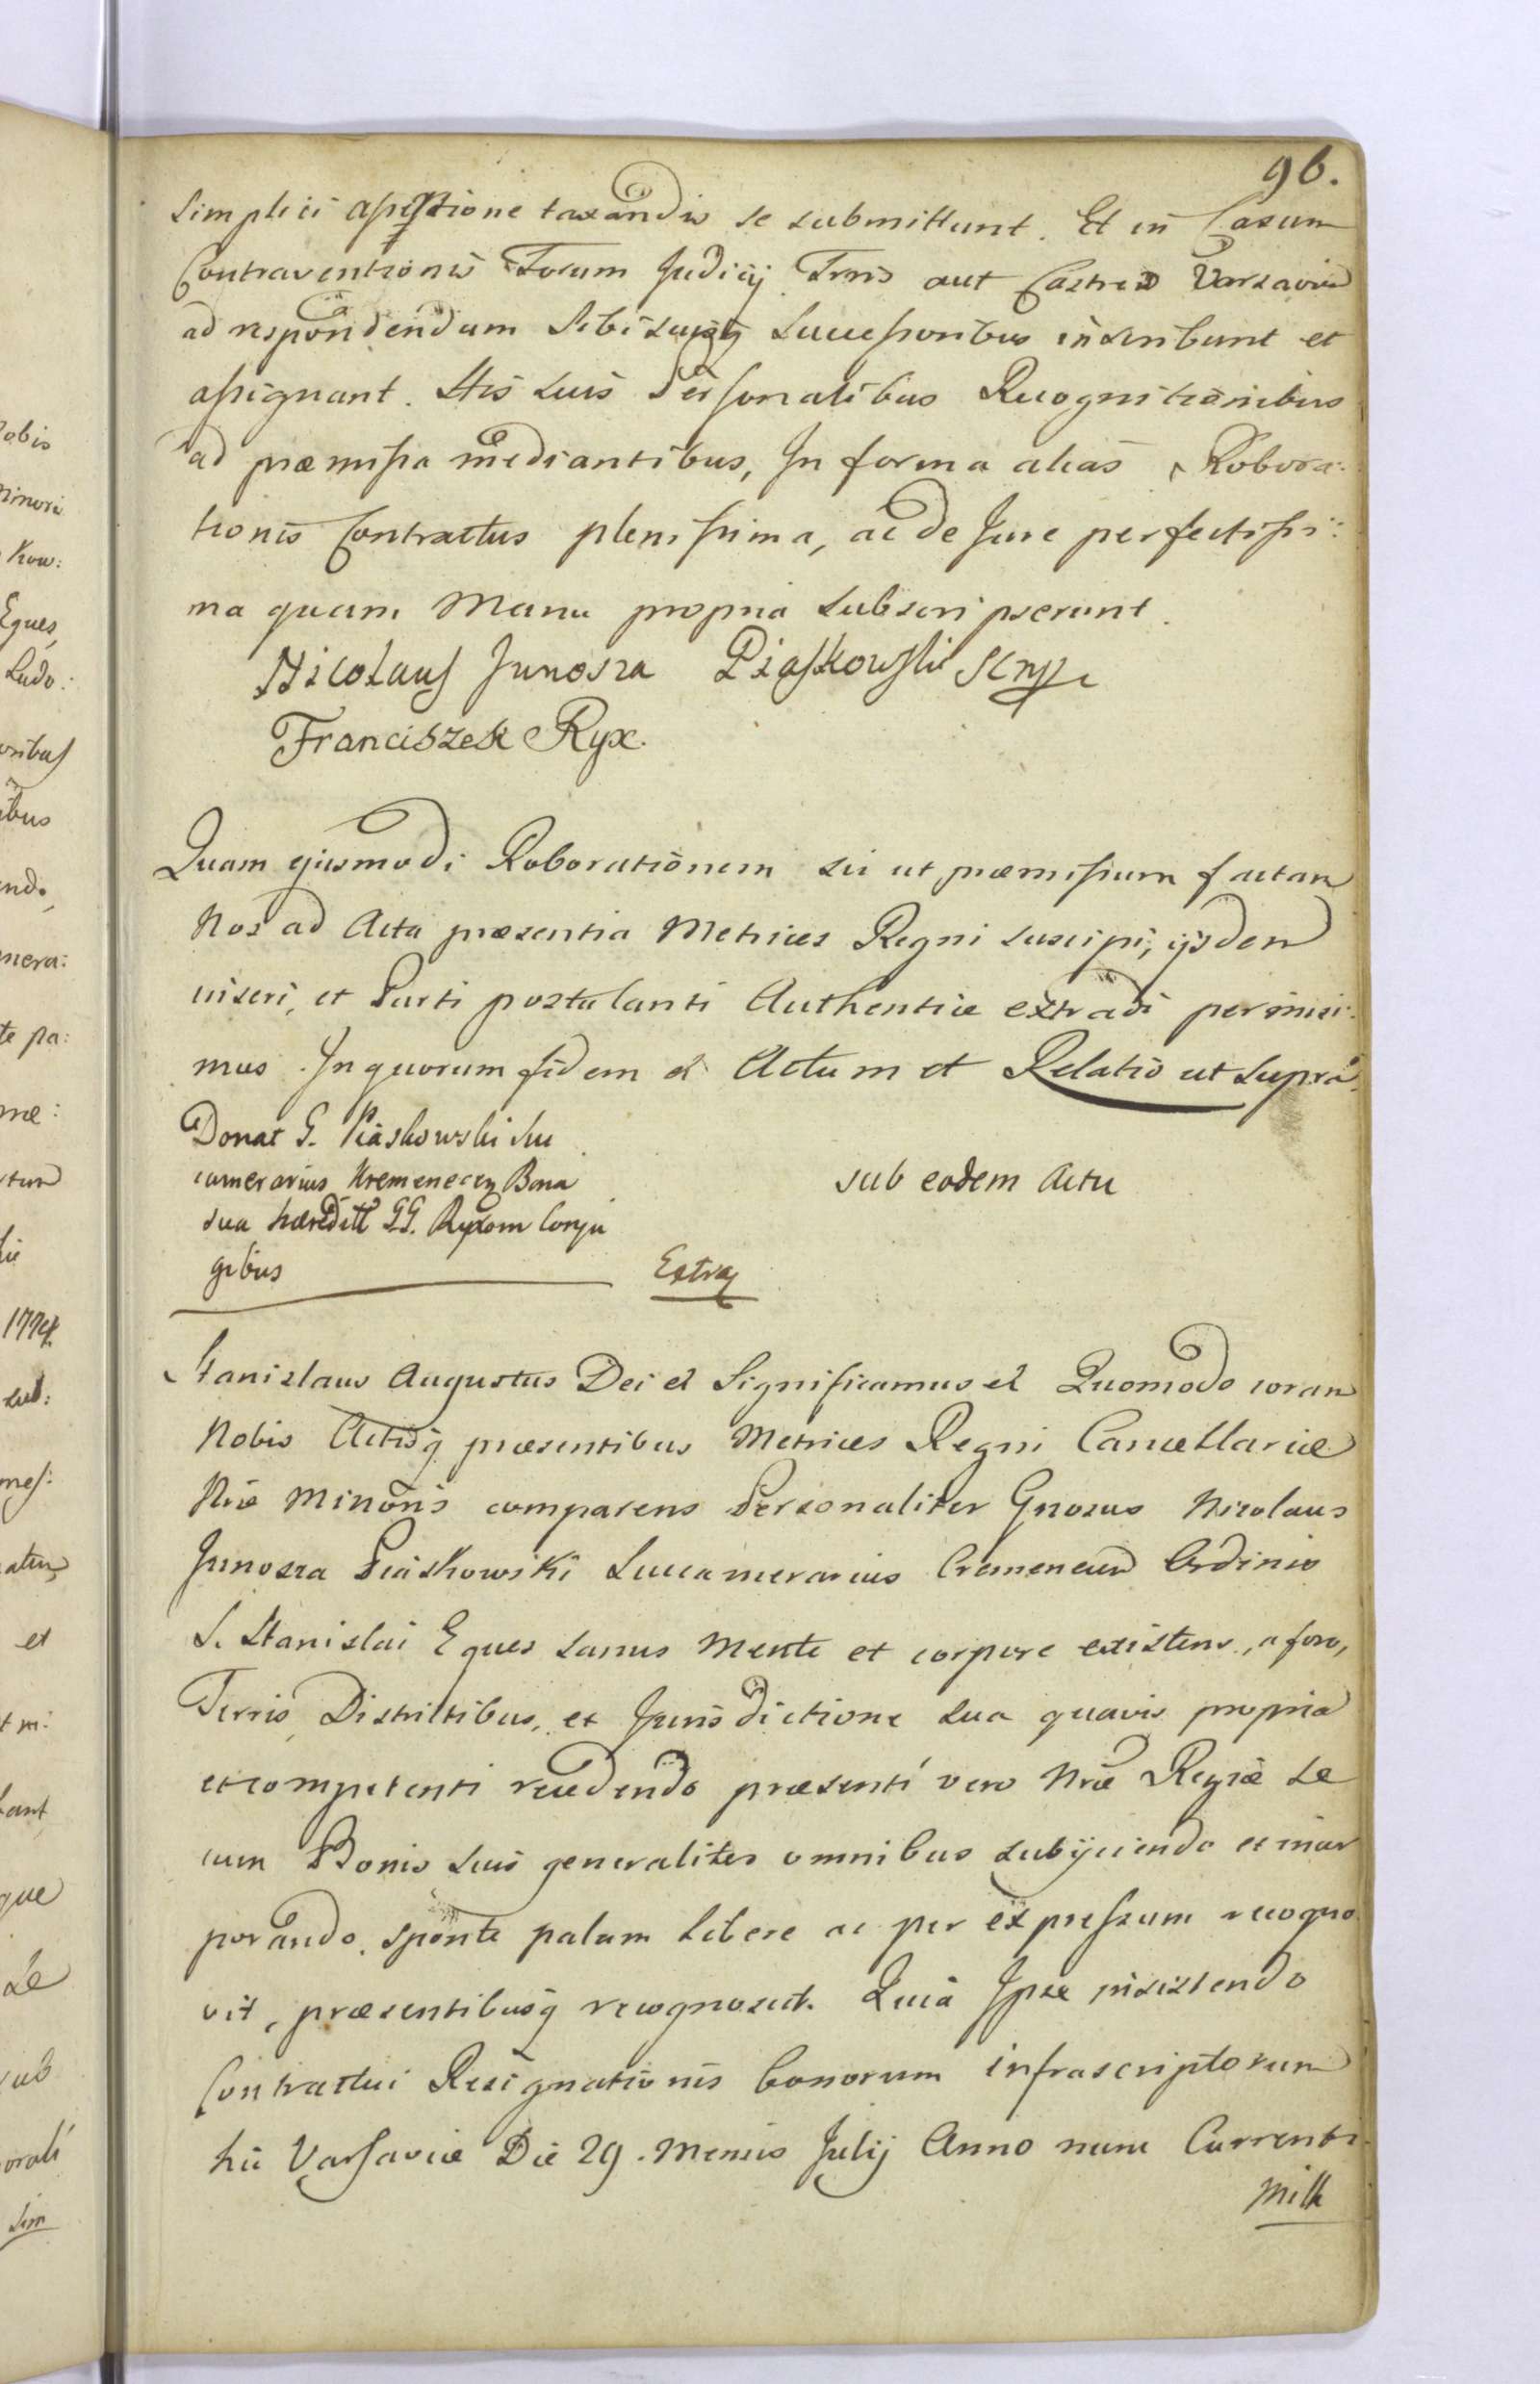 96.
simplici assertione taxandis se submittunt. Et in Casum
Contraventionis Forum Judicij Trris aut Castren Varsavien
ad respondendum Sibi suisq Successoribus inscribunt et
assignant. His suis Personalibus Recognitionibus
ad præmissa mediantibus, In forma alias Robora:
tionis Contractus plenissima, ac de Jure perfectissi:
ma quam Manu propria subscripserunt.
Nicolaus Junosza Piaskowski
Franciszek Ryx.
Quam ejusmodi Roborationem sic ut præmissum factam
Nos ad Acta præsentia Metrices Regni suscipi, ijsdem
inseri, et Parti postulanti Authentice extradi permisi:
mus. In quorum fidem et Actum et Relatio ut supra.
Donat G. Piaskowski Suc
camerarius Kremenecen Bona
sua hæreditt GG. Ryxom Conju
gibus
sub eodem Actu
Extra
Stanislaus Augustus Dei et Significamus et Quomodo coram
Nobis Actisq præsentibus Metrices Regni Cancellariæ
Nræ Minoris comparens Personaliter Gnosus Nicolaus
Junosza Piaskowski Succamerarius Cremenecen Ordinis
S. Stanislai Eques sanus Mente et corpore existens, a foro,
Terris Districtibus, et Jurisdictione sua quavis propria
et competenti recedendo præsenti vero Nræ Regiæ se
cum Bonis suis generaliter omnibus subijciendo et incor
porando. sponte palam libere ac per expressum recogno
vit, præsentibusq recognoscit. Quia Ipse insistendo
Contractui Resignationis bonorum infrascriptorum
hic Varsaviæ Die 29. Mensis Julij Anno nunc Currenti
Mill